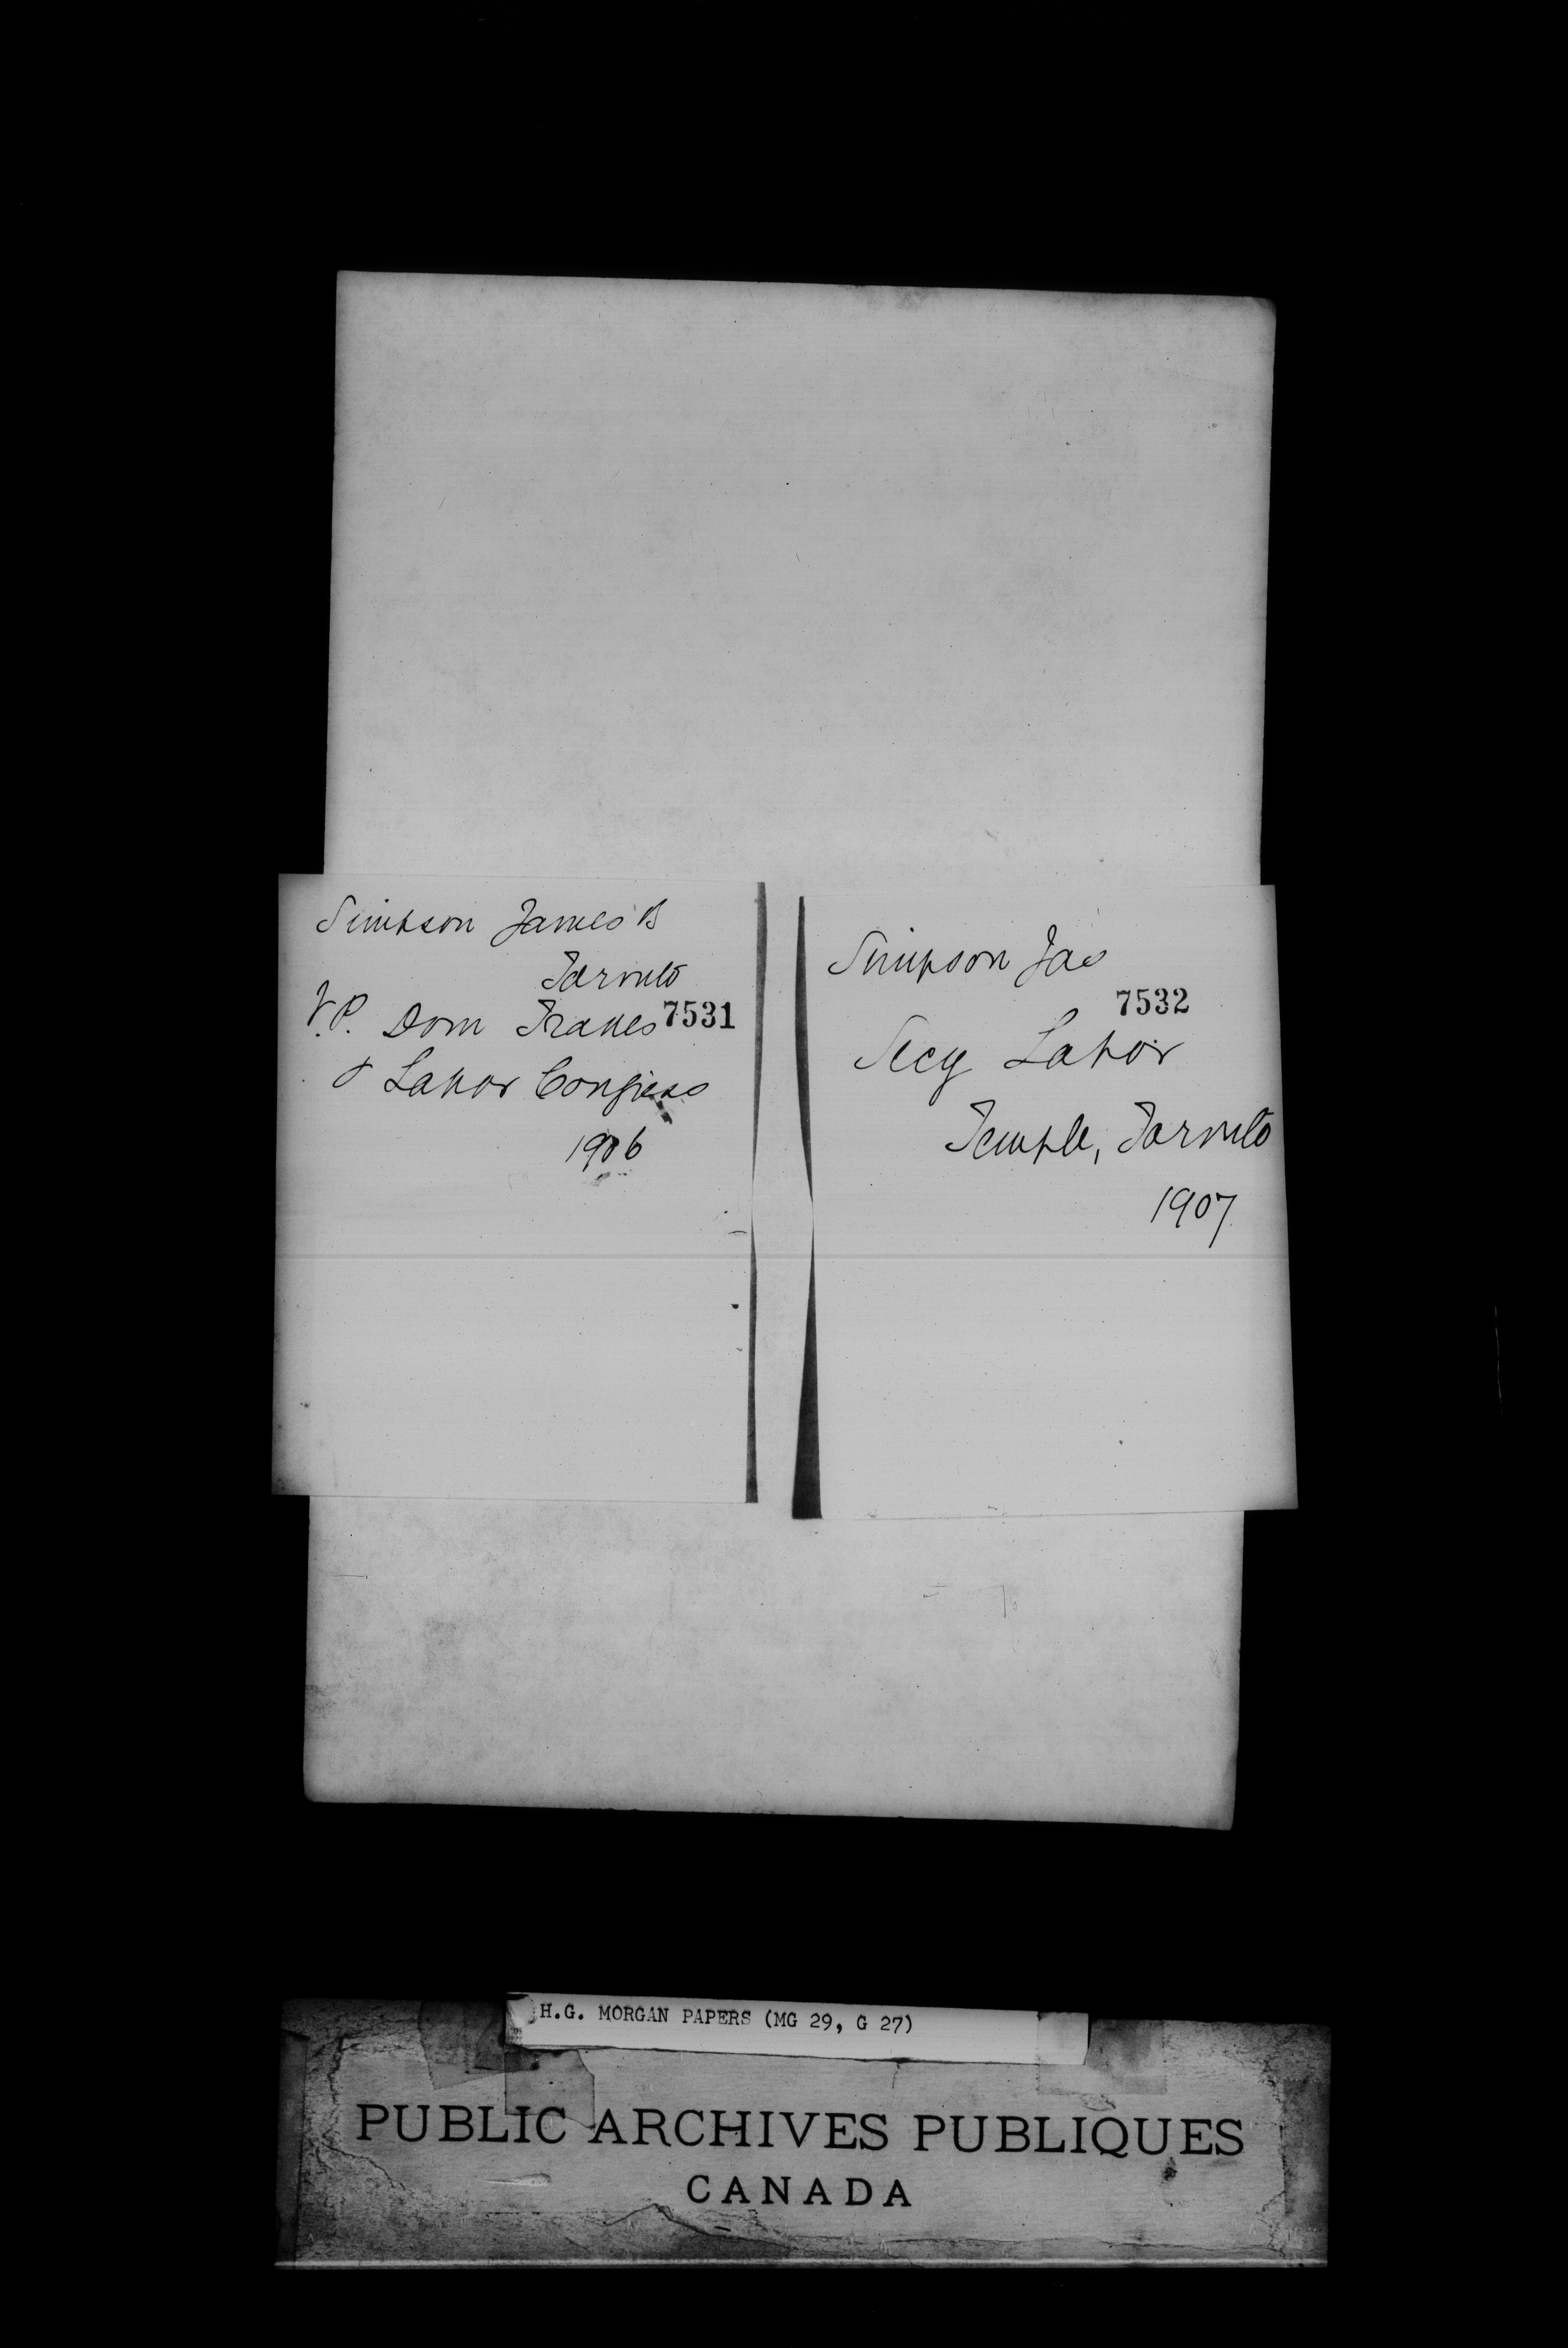 Simpson James B
Toronto
V.P. Dom Trades 7531
& Labor Congress
1906
Simpson Jas
7532
Secy Labor
Temple, Toronto
1907
H.G. MORGAN PAPERS (MG 29, G 27)
PUBLIC ARCHIVES PUBLIQUES
CANADA